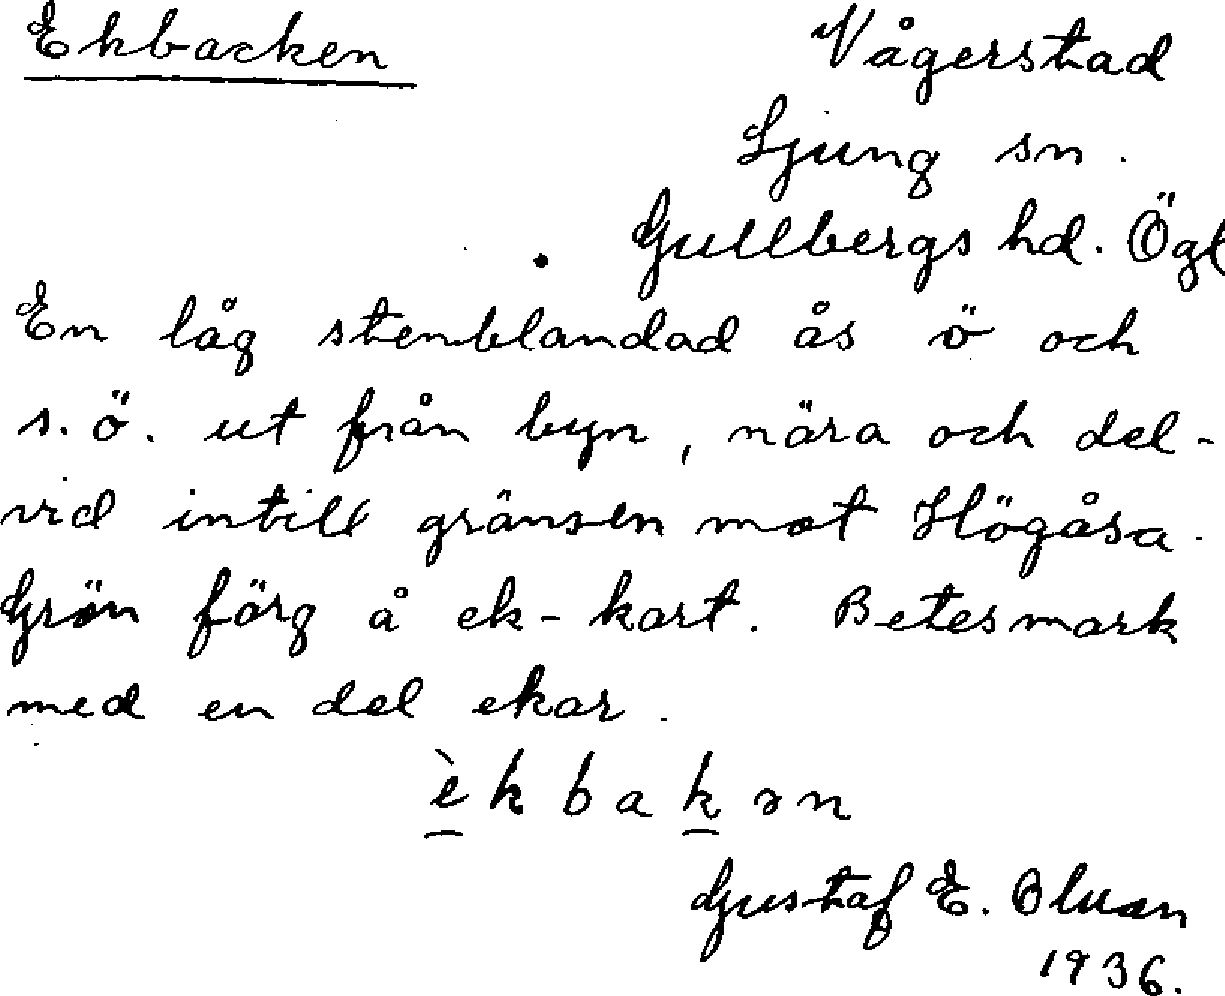 Ekbacken
Vågerstad
Ljung sn.
Gullbergs hd. Ögl
En låg stenblandad ås ö och
s.ö. ut från byn, nära och del-
vid intill gränsen mot Högåsa.
Grön färg å ek-kart. Betesmark
med en del ekar.
èkbakən
Gustaf E.
1936.